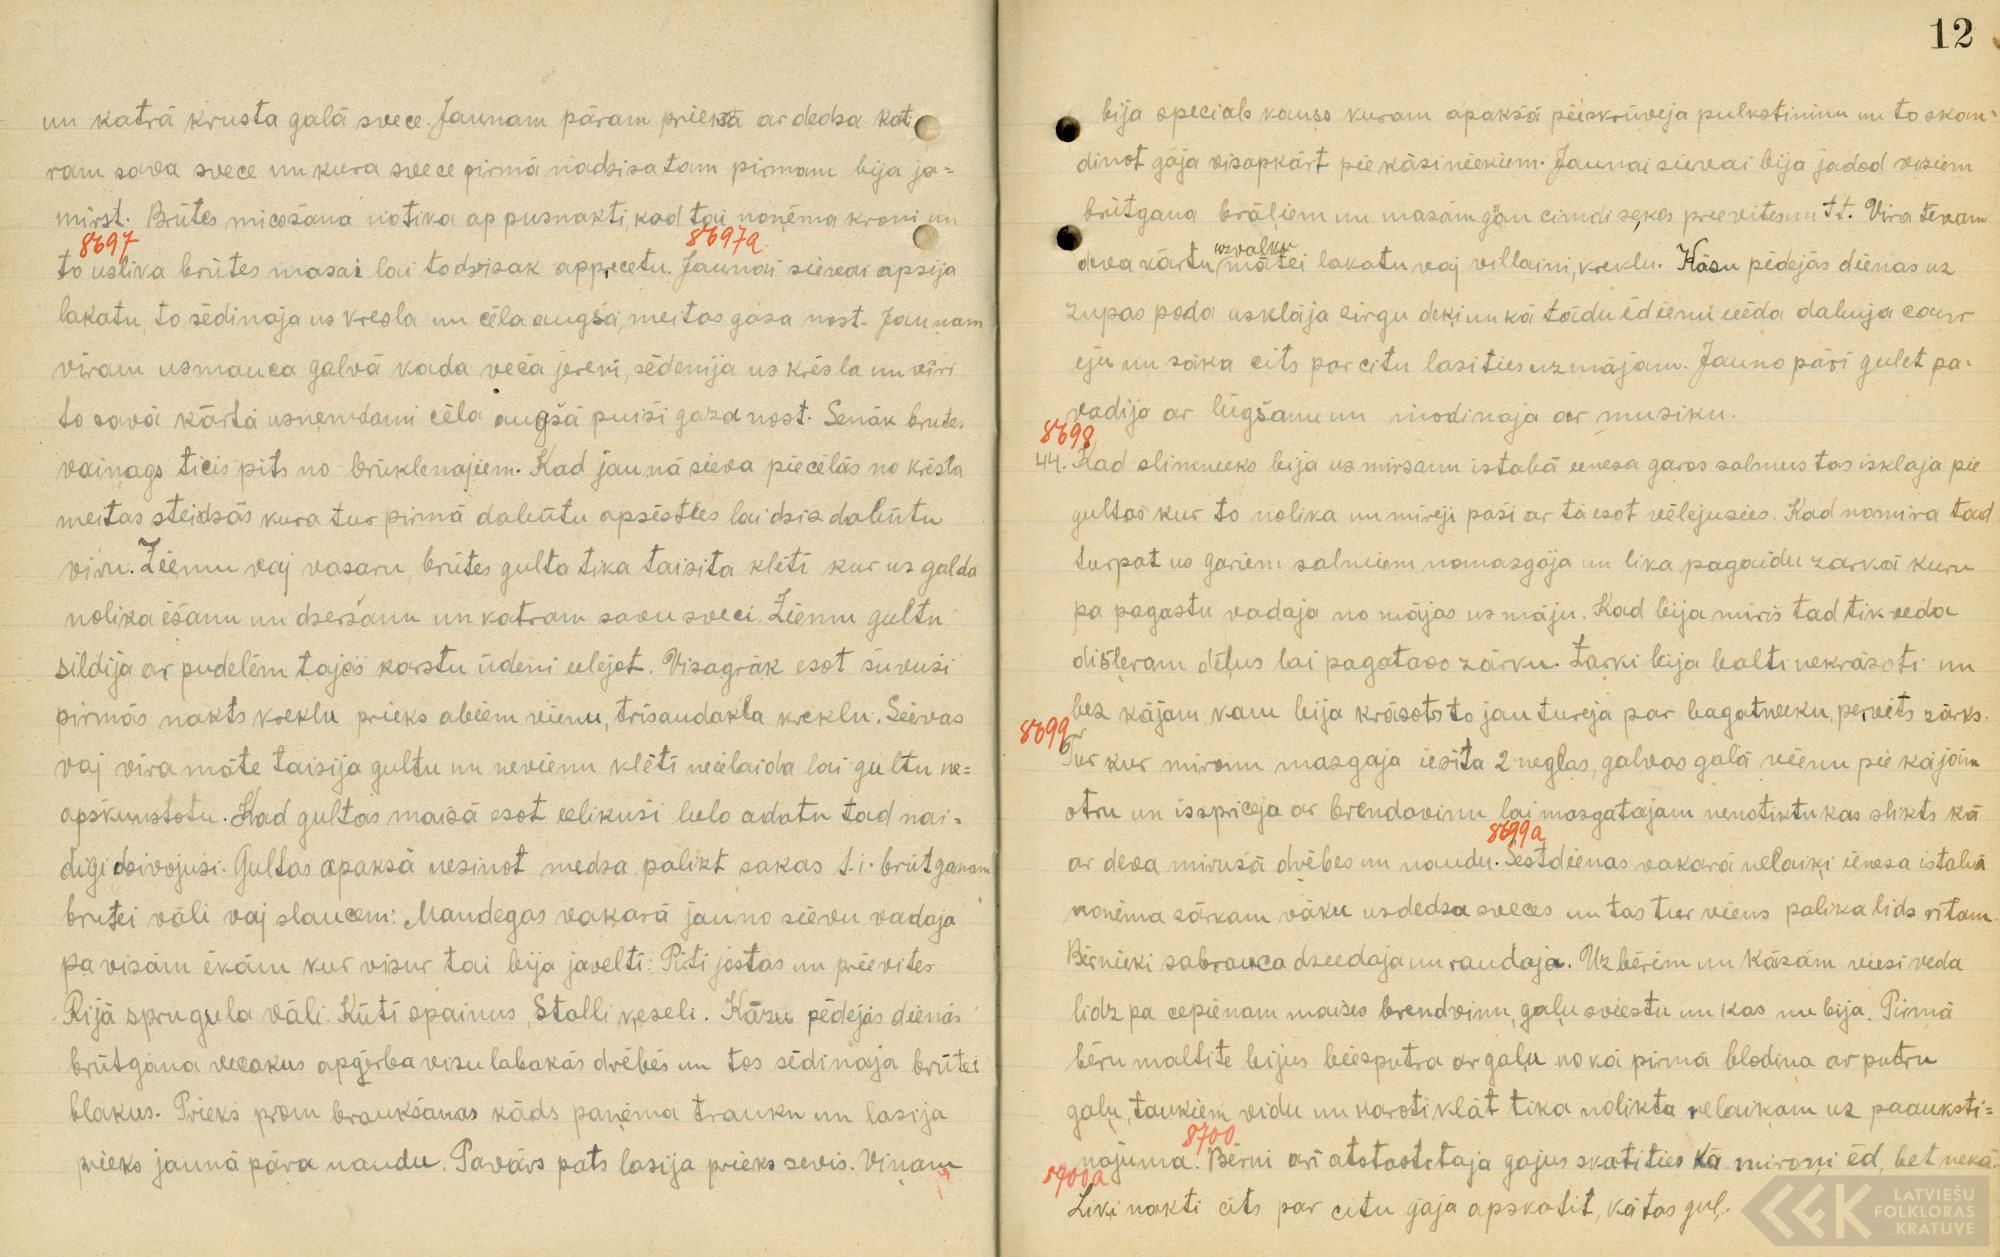 un katrā krusta galā svece. Jaunam pāram priekšā ar dedsa kat-
ram sava svece un kura svece pirmā nodsisa tam pirmam bija ja=
mirst. Brūtes micošana notika ap pusnakti, kad tai noņēma kroni un
8697 8697a
to uslika brūtes masai lai to dvisak apprecetu. Jaunai sievai apsija
lakatu, to sēdinaja us kresla un cēla augšā, meitas gāsa nost. Jaunam
vīram usmauca galvā kada veča jereni, sēdenija us krēsla un vīri
to savā kārtā usņemdami cēla augšā puiši gaza nost. Senāk brutes
vainags ticis pits no brūklenajiem. Kad jaunā sieva piecēlās no krēsla
meitas steidsās kura tur pirmā dabūtu apsēsties lai dsis dabūtu
vīru. Ziemu vaj vasaru, brūtes gulta tika taisita klētī kur us galda
nolika ēšanu un dseršanu un katram savu sveci. Ziemu gultu
sildija ar pudelēm tajās karstu ūdeni eelejot. Visagrāk esot šuvuši
pirmās nakts kreklu prieks abiem vienu, trīsaudakla kreklu. Sievas
vaj vira māte taisija gultu un nevienu klētī neielaida lai gultu ne=
apskunstotu. Kad gultas maisā esot eelikuši lielo adatu tad nai=
digi dsivojuši. Gultas apakšā nesinot medsa palikt sakas t.i. brūtganam
brutei vāli vaj slaucem: Mandegas vakarā jauno sievu vadaja
pa visām ēkām kur visur tai bija javeltī: Pirtī jostas un prievites
Rijā sprugula vāli. Kūtī spainus, Stallī veseli. Kāzu pēdējās dienās
brūtgana vecakus apģērba visu labakās drēbēs un tos sēdinaja brūtei
blakus. Prieks prom braukšanas kāds paņēma trauku un lasija
prieks jaunā pāra naudu. Pavārs pats lasija prieks sevis. Viņam
12
bija specials kauss kuram apakšā pieskrūvēja pulkstininu un to skan=
dinot gāja visapkārt pie kāsiniekiem. Jaunai sievai bija jadod visiem
brūtgana brāļiem un masām gan cimdi seķes prievites un t.t. Vira tēvam
uzvalku
deva kārtu mātei lakatu vaj villaini, kreklu. Kāsu pēdejās dienas uz
zupas poda usklāja sirgu deķi un kā tādu ēdienu eeēda dabuja caur
eju un sāka cits par citu lasities uz mājam. Jauno pāri gulet pa=
vadija ar lūgšanu un modinaja ar musiku.
8698
44. Kad slimneeks bija us mirsanu istabā eenesa garos salmus tos isklaja pie
gultas kur to nolika un mireji paši ar tā esot vēlejusies. Kad nomira tad
turpat us gariem salmiem nomasgāja un lika pagaidu zarkā kuru
pa pagastu vadaja no mājas us māju. Kad bija miris tad tik veda
dišleram dēļus lai pagatavo zārku. Zarki bija balti nekrāsoti un
bez kājam, kam bija krāsots to jau tureja par bagatneeku, pervēts zārks.
8699
Tur kur mironu masgaja iesita 2 neglas, galvas galā vienu pie kājām
otru un isspriceja ar brendavinu lai masgatajam nenotiktu kas slikts kā
8699a
ar deva mirušā drēbes un naudu. Sestdienas vakarā nelaiķi ienesa istabā
noņēma sārkam vāku usdedsa sveces un tas tur viens palika lids rītam.
Bērnieki sabrauca dseedaja un raudaja. Uz bērēm un Kāzām viesi veda
lidz pa cepienam maises brendvinu, gaļu sviestu un kas nu bija. Pirmā
bēru maltite bijus biesputra ar gaļu no kā pirmā blodina ar putru
gaļu, taukiem vidu un karoti klāt tika nolikta nelaiķam uz paauksti=
8700
najuma. Bērni arī atstastitaja gajus skatities kā mironi ēd, bet nekā.
8700a
Liķi nakti cits par citu gāja apskatīt, kā tas guļ.
LATVIEŠU
FOLKLORAS
KRĀTUVE